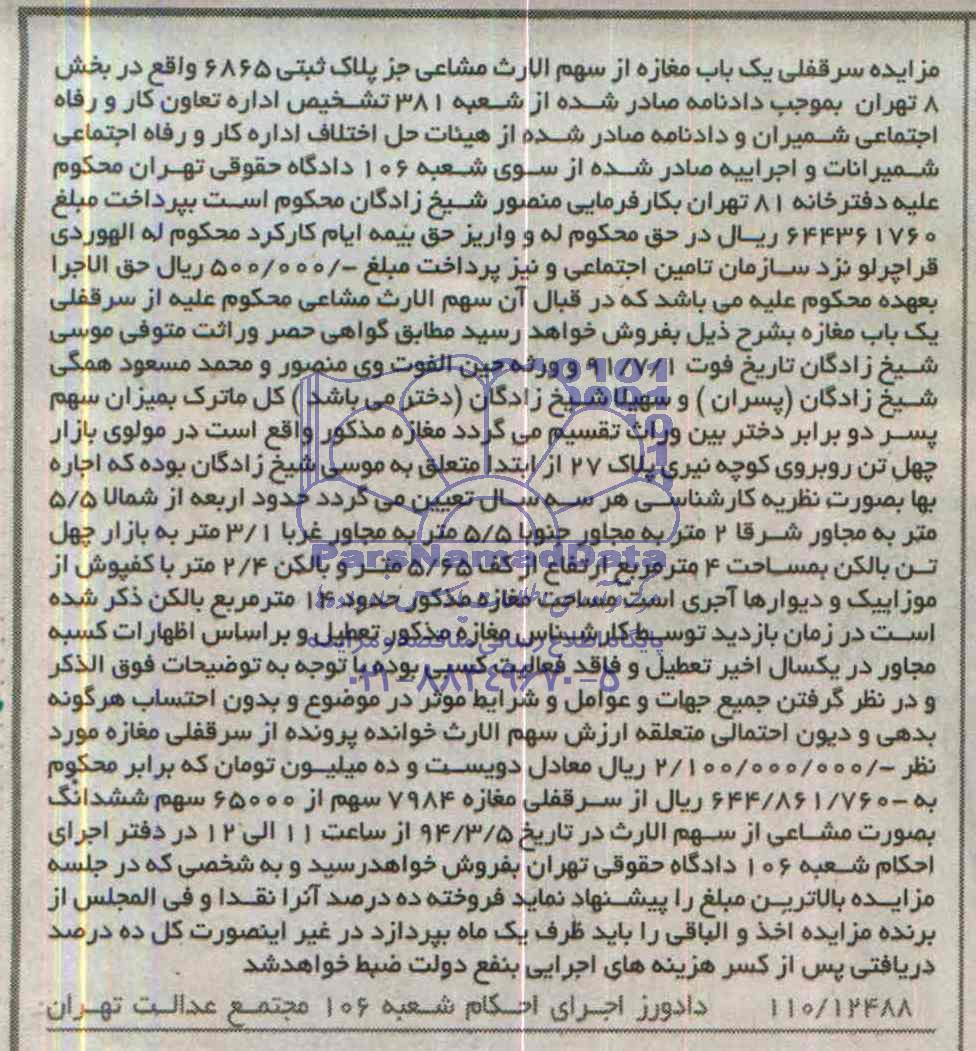 مزایده سرقفلی یک باب مغازه از سهم الارث مشاعی جز پلاک ثبتی ۶۸۶۵ واقع در بخش
۸ تهران بموجب دادنامه صادر شده از شعبه ۳۸۱ تشخیص اداره تعاون کار و رفاه
اجتماعی شمیران و دادنامه صادر شده از هیئات حل اختلاف اداره کار و رفاه اجتماعی
شمیرانات و اجراییه صادر شده از سوی شعبه ۱۰۶ دادگاه حقوقی تهران محکوم
علیه دفترخانه ۸۱ تهران بکارفرمایی منصور شیخ زادگان محکوم است بپرداخت مبلغ
۶۴۴۳۶۱۷۶۰ ریال در حق محکوم له و واریز حق بیمه ایام کارکرد محکوم له الهوردی
قراچرلو نزد سازمان تامین اجتماعی و نیز پرداخت مبلغ -/۵۰۰/۰۰۰ ریال حق الاجرا
بعهده محکوم علیه می باشد که در قبال آن سهم الارث مشاعی محکوم علیه از سرقفلی
یک باب مغازه بشرح ذیل بفروش خواهد رسید مطابق گواهی حصر وراثت متوفی موسی
شیخ زادگان تاریخ فوت ۹۱/۷/۱ و ورثه حین الفوت وی منصور و محمد مسعود همگی
شیخ زادگان (پسران ) و سهیلا شیخ زادگان (دختر می باشد ) کل ماترک بمیزان سهم
پسر دو برابر دختر بین وراث تقسیم می گردد مغازه مذکور واقع است در مولوی بازار
چهل تن روبروی کوچه نیری پلاک ۲۷ از ابتدا متعلق به موسی شیخ زادگان بوده که اجاره
بها بصورت نظریه کارشناسی هر سه سال تعیین می گردد حدود اربعه از شمالا ۵/۵
متر به مجاور شرقا ۲ متر به مجاور جنوبا ۵/۵ متر به مجاور غربا ۳/۱ متر به بازار چهل
تن بالکن بمساحت ۴ مترمربع ارتفاع از کف ۵/۶۵ متر و بالکن ۲/۴ متر با کفپوش از
موزاییک و دیوارها آجری است مساحت مغازه مذکور حدود ۱۴ مترمربع بالکن ذکر شده
است در زمان بازدید توسط کارشناس مغازه مذکور تعطیل و براساس اظهارات کسبه
مجاور در یکسال اخیر تعطیل و فاقد فعالیت کسبی بوده با توجه به توضیحات فوق الذکر
و در نظر گرفتن جمیع جهات و عوامل و شرایط موثر در موضوع و بدون احتساب هرگونه
بدهی و دیون احتمالی متعلقه ارزش سهم الارث خوانده پرونده از سرقفلی مغازه مورد
نظر -/۲/۱۰۰/۰۰۰/۰۰۰ ریال معادل دویست و ده میلیون تومان که برابر محکوم
به -۶۴۴/۸۶۱/۷۶۰ ریال از سرقفلی مغازه ۷۹۸۴ سهم از ۶۵۰۰۰ سهم ششدانگ
بصورت مشاعی از سهم الارث در تاریخ ۹۴/۳/۵ از ساعت ۱۱ الی ۱۲ در دفتر اجرای
احکام شعبه ۱۰۶ دادگاه حقوقی تهران بفروش خواهدرسید و به شخصی که در جلسه
مزایده بالاترین مبلغ را پیشنهاد نماید فروخته ده درصد آنرا نقدا و فی المجلس از
برنده مزایده اخذ و الباقی را باید ظرف یک ماه بپردازد در غیر اینصورت کل ده درصد
دریافتی پس از کسر هزینه های اجرایی بنفع دولت ضبط خواهدشد
۱۱۰/۱۲۴۸۸ دادورز اجرای احکام شعبه ۱۰۶ مجتمع عدالت تهران
ParsNamadData
پایگاه اطلاع رسانی مناقصه و مزایده
۰۲۱-۸۸۳۴۹۶۷۰-۵